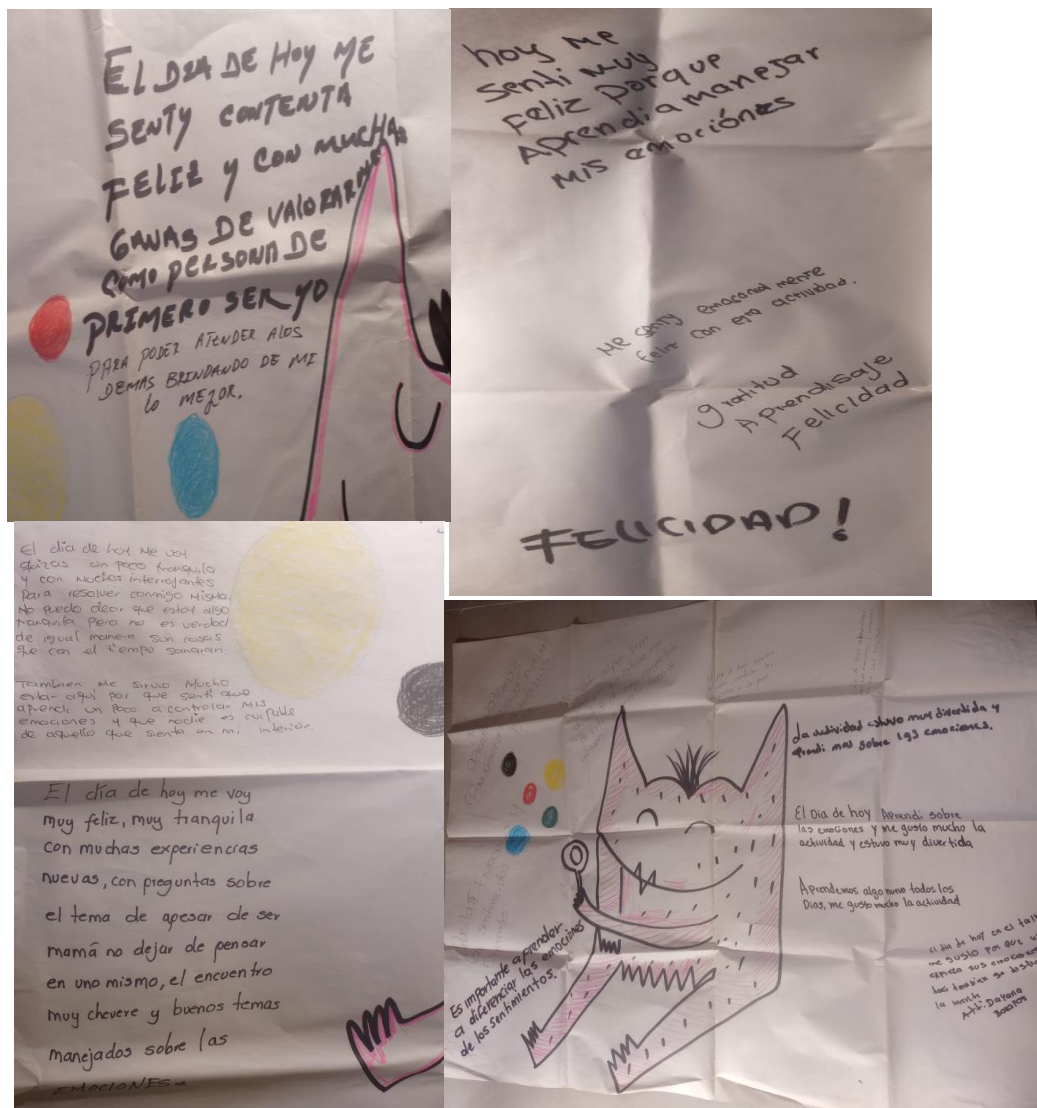 EL DIA DE HOY ME
SENTY CONTENTA
FELIZ Y CON MUCHA
GANAS DE VALORARME
COMO PERSONA DE
PRIMERO SER YO
PARA PODER ATENDER ALOS
DEMAS BRINDANDO DE MI
lo MEJOR.
hoy me
senti muy
Feliz porque
Aprendi a manejar
Mis emociónes
Me senty emocional mente
feliz con esta actividad.
gratitud
Aprendisaje
Felicidad
FELICIDAD!
El dia de hoy Me voy
quizas un poco tranquila
y con Muchos interrogantes
Para resolver conmigo Misma.
No puedo decir que estoy algo
tranquila Pero no es verdad
de igual manera son cosas
que con el tiempo sanaran.
Tambien Me sirvio Mucho
estar aqui por que senti que
aprendi un Poco a controlar Mis
emociones y que nadie es culpable
de aquello que sienta en mi interior.
El día de hoy me voy
muy feliz, muy tranquila
con muchas experiencias
nuevas, con preguntas sobre
el tema de apesar de ser
mamá no dejar de pensar
en uno mismo, el encuentro
muy chevere y buenos temas
manejados sobre las
EMOCIONES
La actividad estuvo muy divertida y
aprendi mas sobre las emociones.
El Dia de hoy Aprendi sobre
las emociones y me gusto mucho la
actividad y estuvo muy divertida
Aprendemos algo nuevo todos los
Dias, me gusto mucho la actividad
Es importante aprender
a diferenciar las emociones
de los sentimientos.
el dia de hoy en el
me gusto por que
expresa sus emociones
Att: Dayana